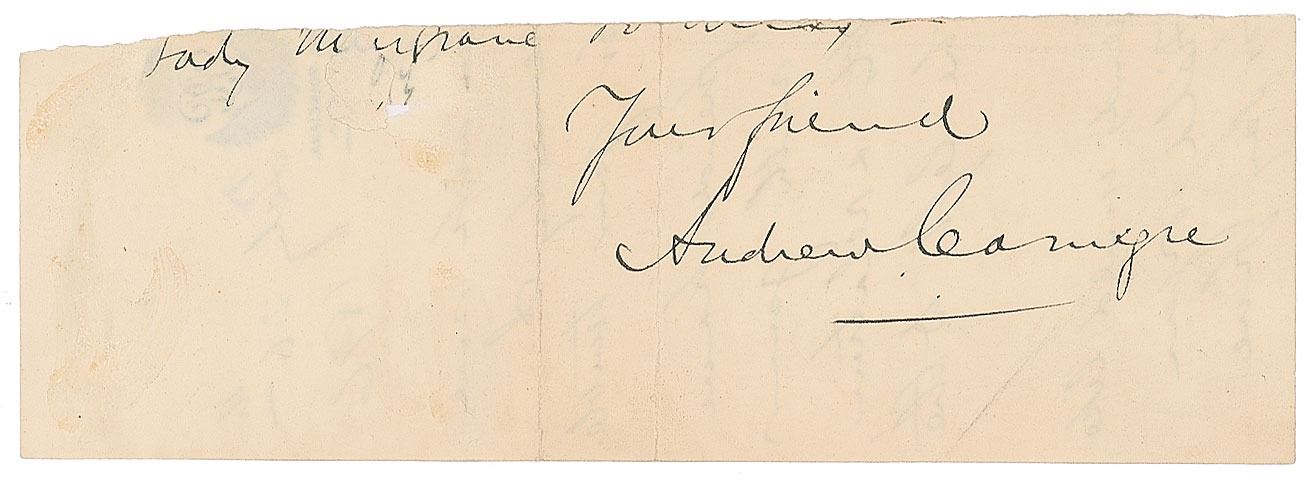 Lady Musgrave
Your friend
Andrew Carnegie